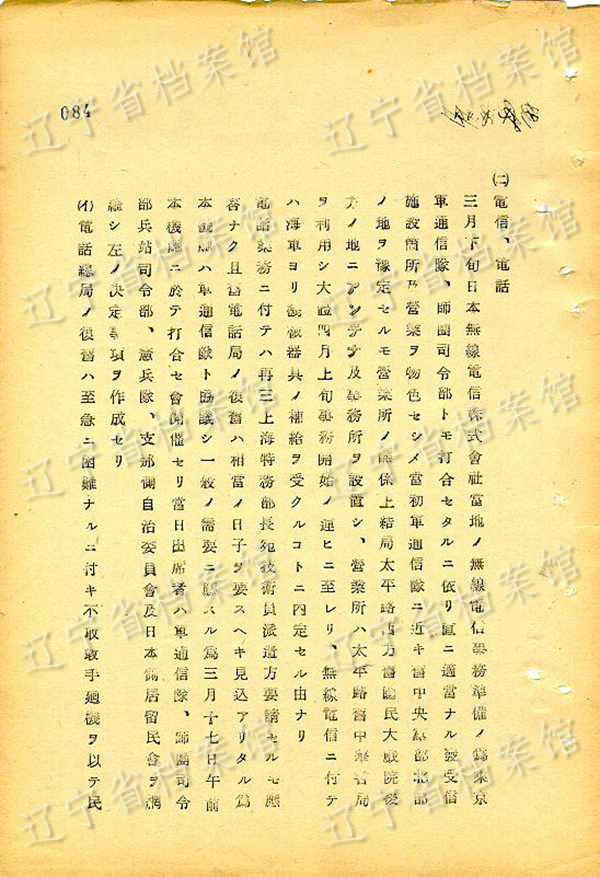 084
㈡電信、電話
三月下旬日本無線電信株式會社當地ノ無線電信事務準備ノ爲來京
軍通信隊、師團司令部トモ打合セタルニ依リ直ニ適當ナル被受信
施設箇所及營業ヲ物色セシメ當初軍通信隊ニ近キ舊中央黨部北部
ノ地ヲ豫定セルモ營業所ノ關係上結局太平路西方舊國民大戲院後
方ノ地ニアンテナ及事務所ヲ設置シ、營業所ハ太平路舊中央書局
ヲ利用シ大體四月上旬事務開始ノ運ヒニ至レリ、無線電信ニ付テ
ハ海軍ヨリ機械器具ノ補給ヲ受クルコトニ內定セル由ナリ
電話業務ニ付テハ再三上海特務部長宛技術員派遣方要請セルモ應
答ナク且舊電話局ノ復舊ハ相當ノ日子ヲ要スヘキ見込アリタル爲
本機關ハ軍通信隊ト協議シ一般ノ需要ニ應スル爲三月十七日午前
本機關ニ於テ打合セ會開催セリ當日出席者ハ軍通信隊、師團司令
部兵站司令部、憲兵隊、支那側自治委員會及日本側居留民會ヲ網
總シ左ノ決定事項ヲ作成セリ
㈠電話總局ノ復舊ハ至急ニ困難ナルニ付キ不取敢手廻機ヲ以テ民
辽宁省档案馆
辽宁省档案馆
辽宁省档案馆
辽宁省档案馆
辽宁省档案馆
辽宁省档案馆